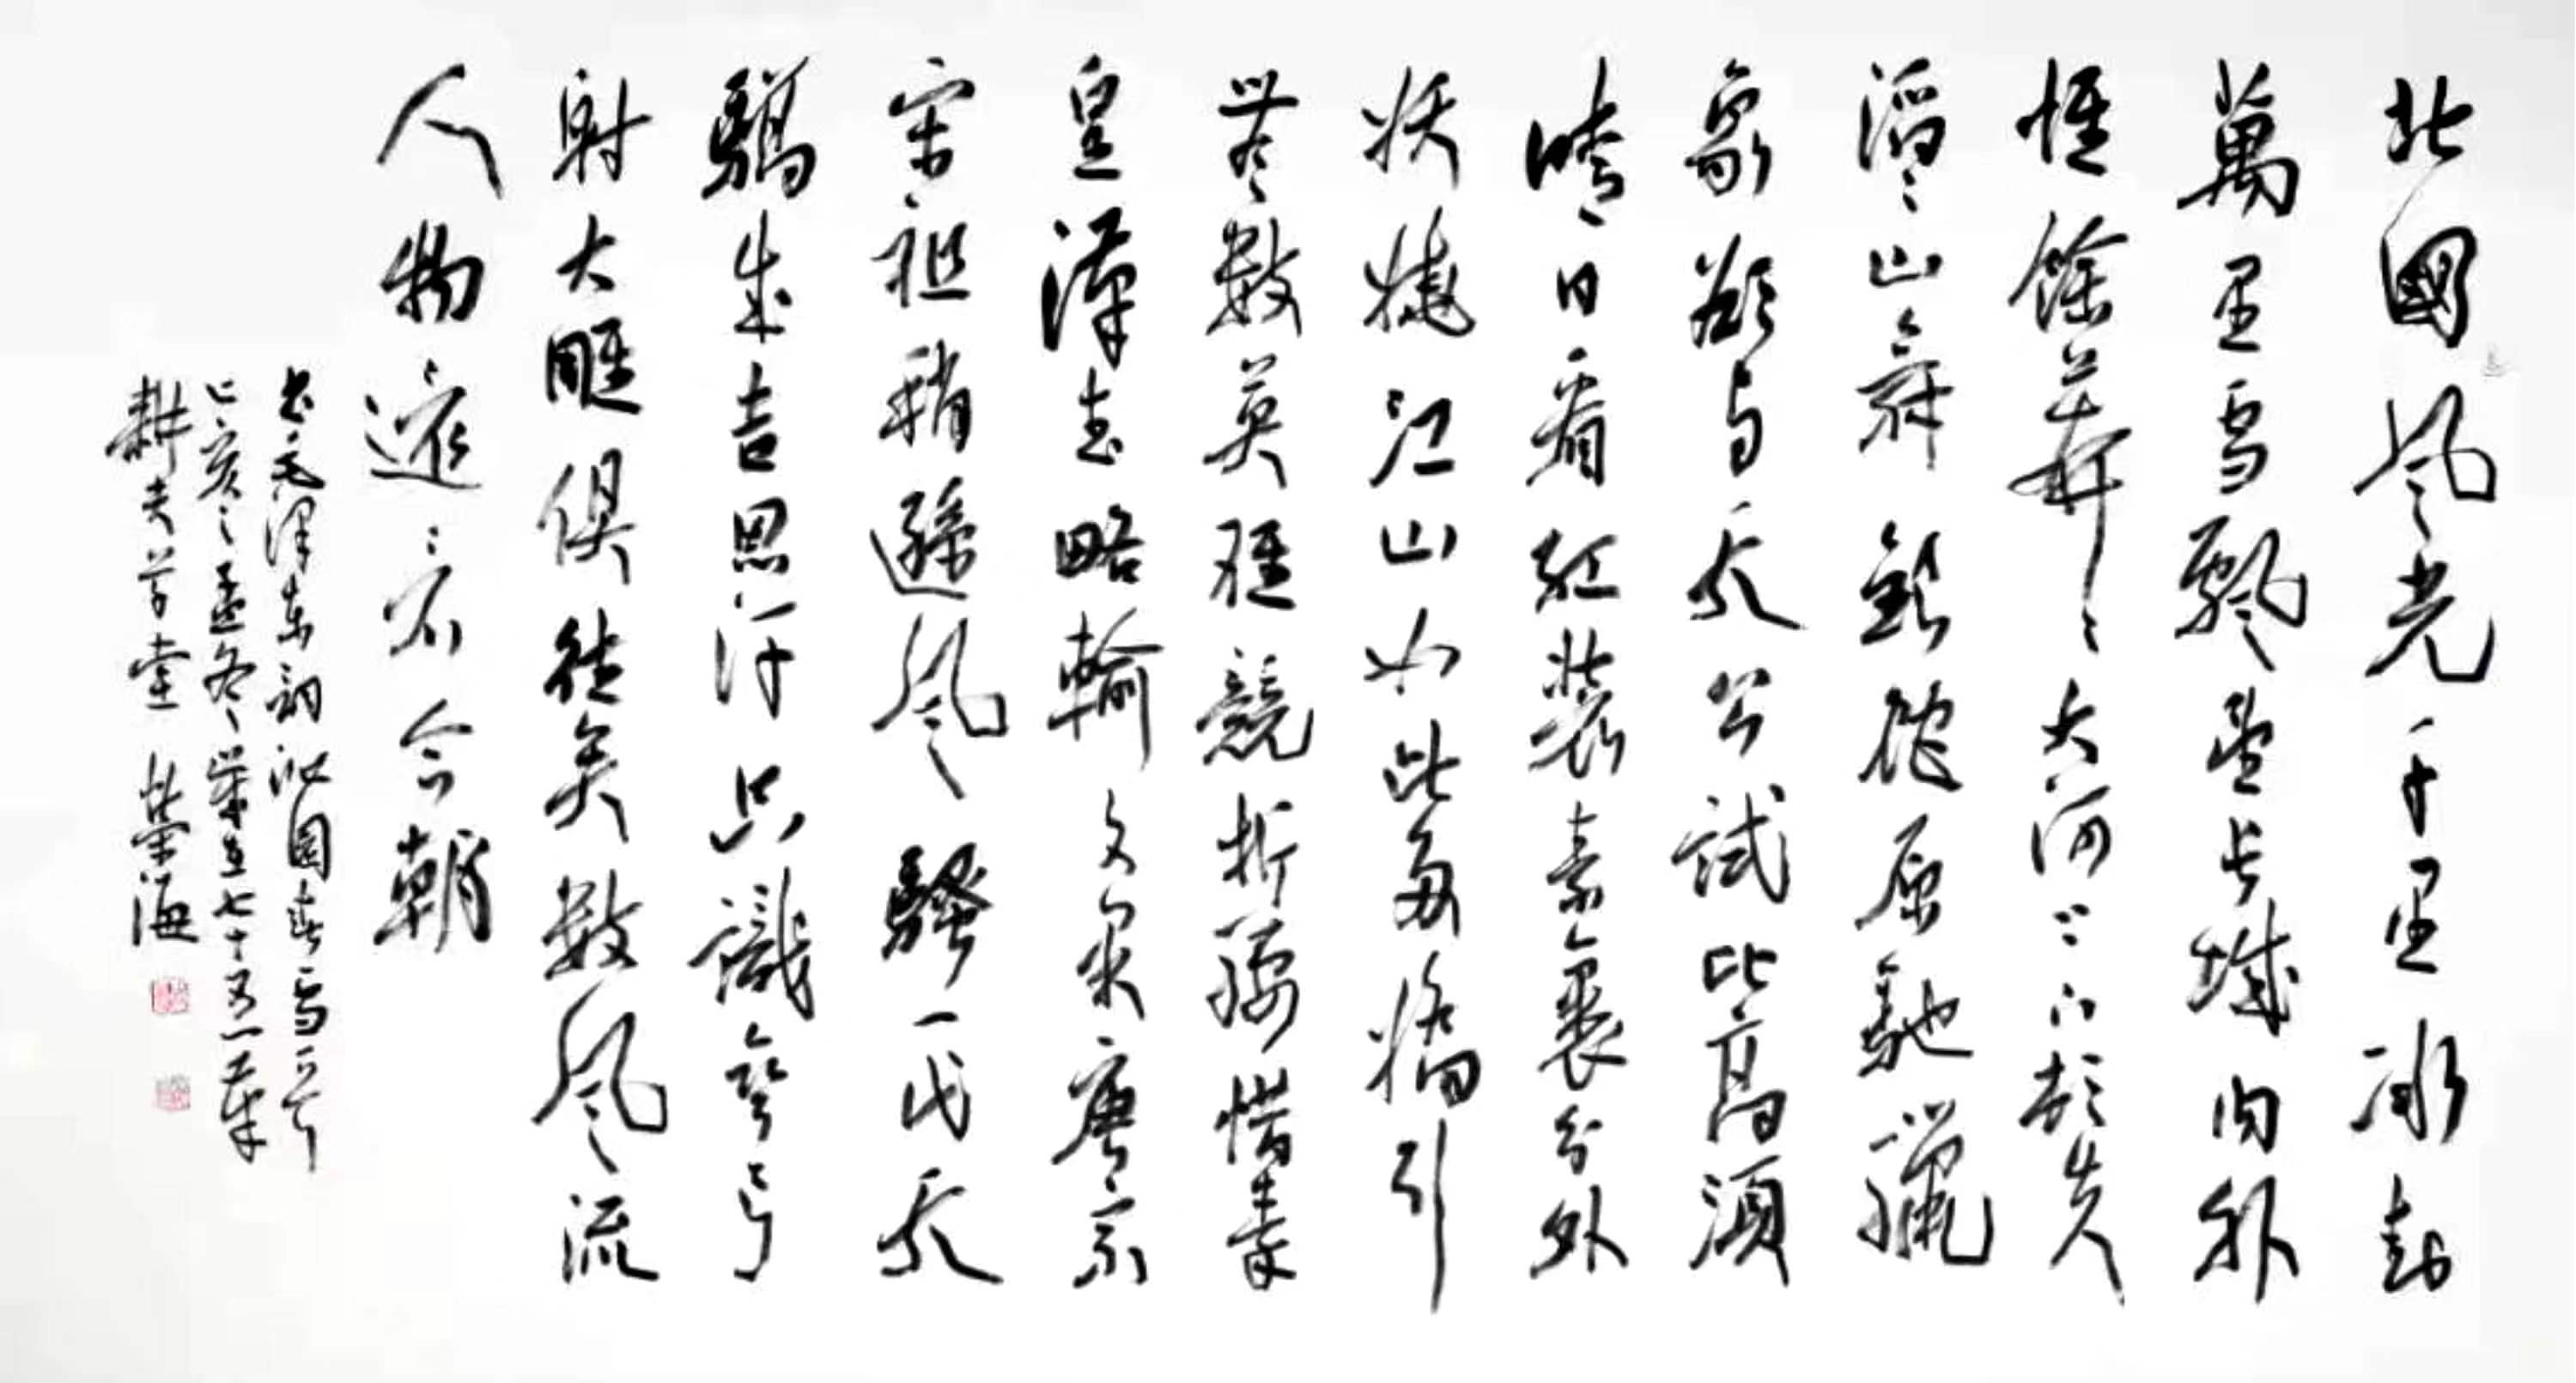 北國風光千里冰封
萬里雪飄望長城內外
惟餘莽莽大河上下頓失
滔滔山舞銀蛇原馳蠟
象欲與天公試比高須
晴日看紅裝素裹分外
妖嬈江山如此多嬌引
無數英雄競折腰惜秦
皇漢武略輸文采唐宗
宋祖稍遜風騷一代天
驕成吉思汗只識彎弓
射大雕俱往矣數風流
人物還看今朝
書毛澤東詞沁園春雪一首
己亥之孟冬七十五
耕夫草堂榮海